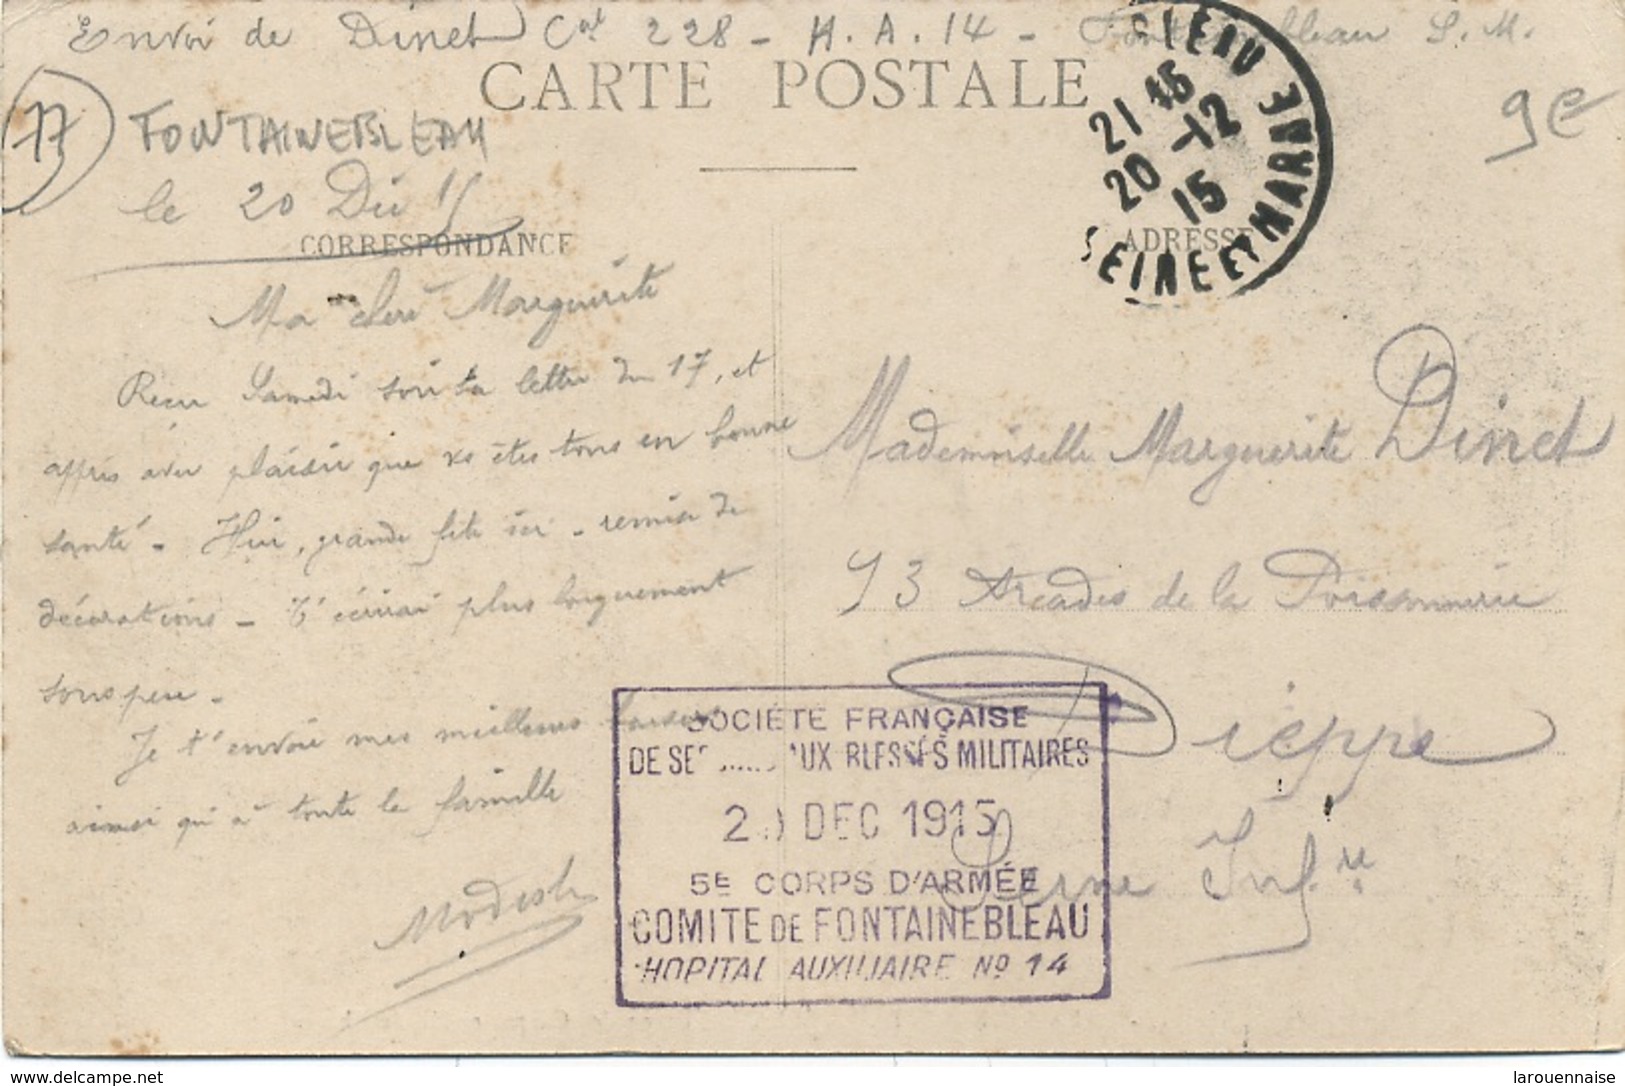 Envoi de Dinet Cal 228 - H.A.14 - Fontainebleau S.M.
CARTE POSTALE
17
FONTAINEBLEAU
le 20 Déc 15
9e
21 45
20 -12
15
SEINE ET MARNE
CORRESPONDANCE
ADRESSE
Ma chère Marguerite
Reçu Samedi soir ta lettre du 17, et
appris avec plaisir que vs êtes tous en bonne
santé - Hier, grande fête ici - remise de
décorations - T'écrirai plus longuement
sous peu -
Je t'envoie mes meilleurs baisers
ainsi qu'à toute la famille
Modeste
Mademoiselle Marguerite Dinet
93 Arcades de la Poissonnerie
Dieppe
Seine Infre
SOCIÉTÉ FRANÇAISE
DE SE AUX BLESSÉS MILITAIRES
2 DEC 1915
5E CORPS D'ARMÉE
COMITE DE FONTAINEBLEAU
HOPITAL AUXILIAIRE No 14
delcampe.net
larouennaise